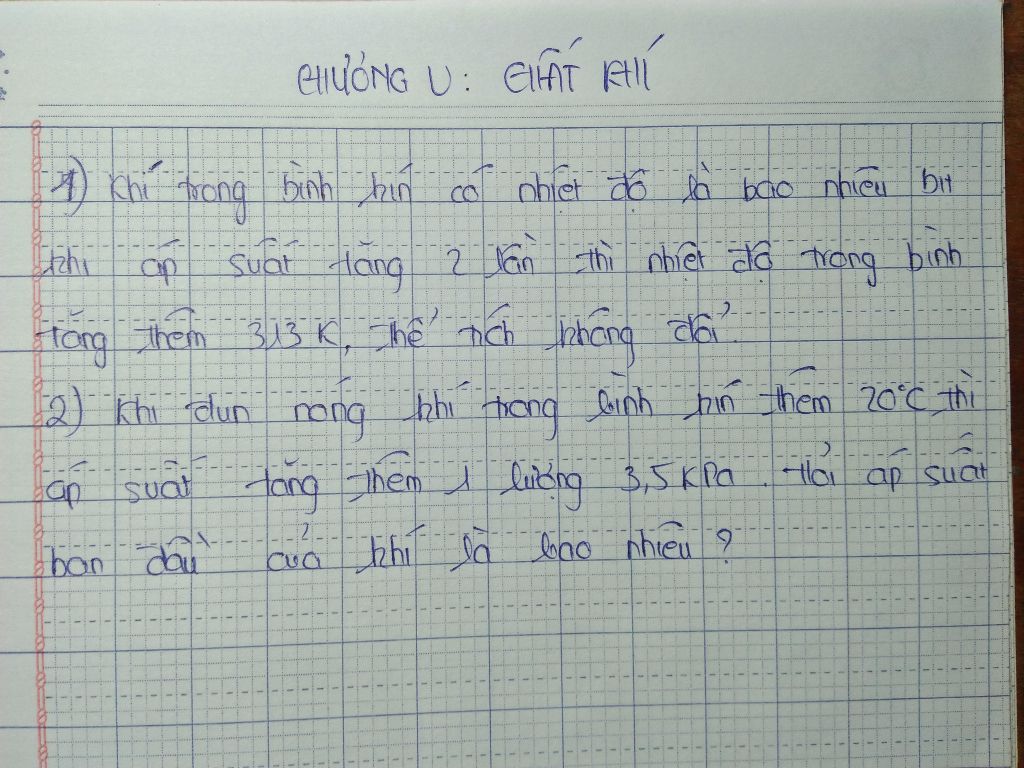 CHƯƠNG V: CHẤT KHÍ
1) Khí trong bình kín có nhiệt độ là bao nhiêu bit
khi áp suất tăng 2 lần thì nhiệt độ trong bình
tăng thêm 313 K, thể tích không đổi.
2) Khi đun nóng khí trong bình kín thêm 20°C thì
áp suất tăng thêm 1 lượng 3,5 KPa. Hỏi áp suất
ban đầu của khí là bao nhiêu?